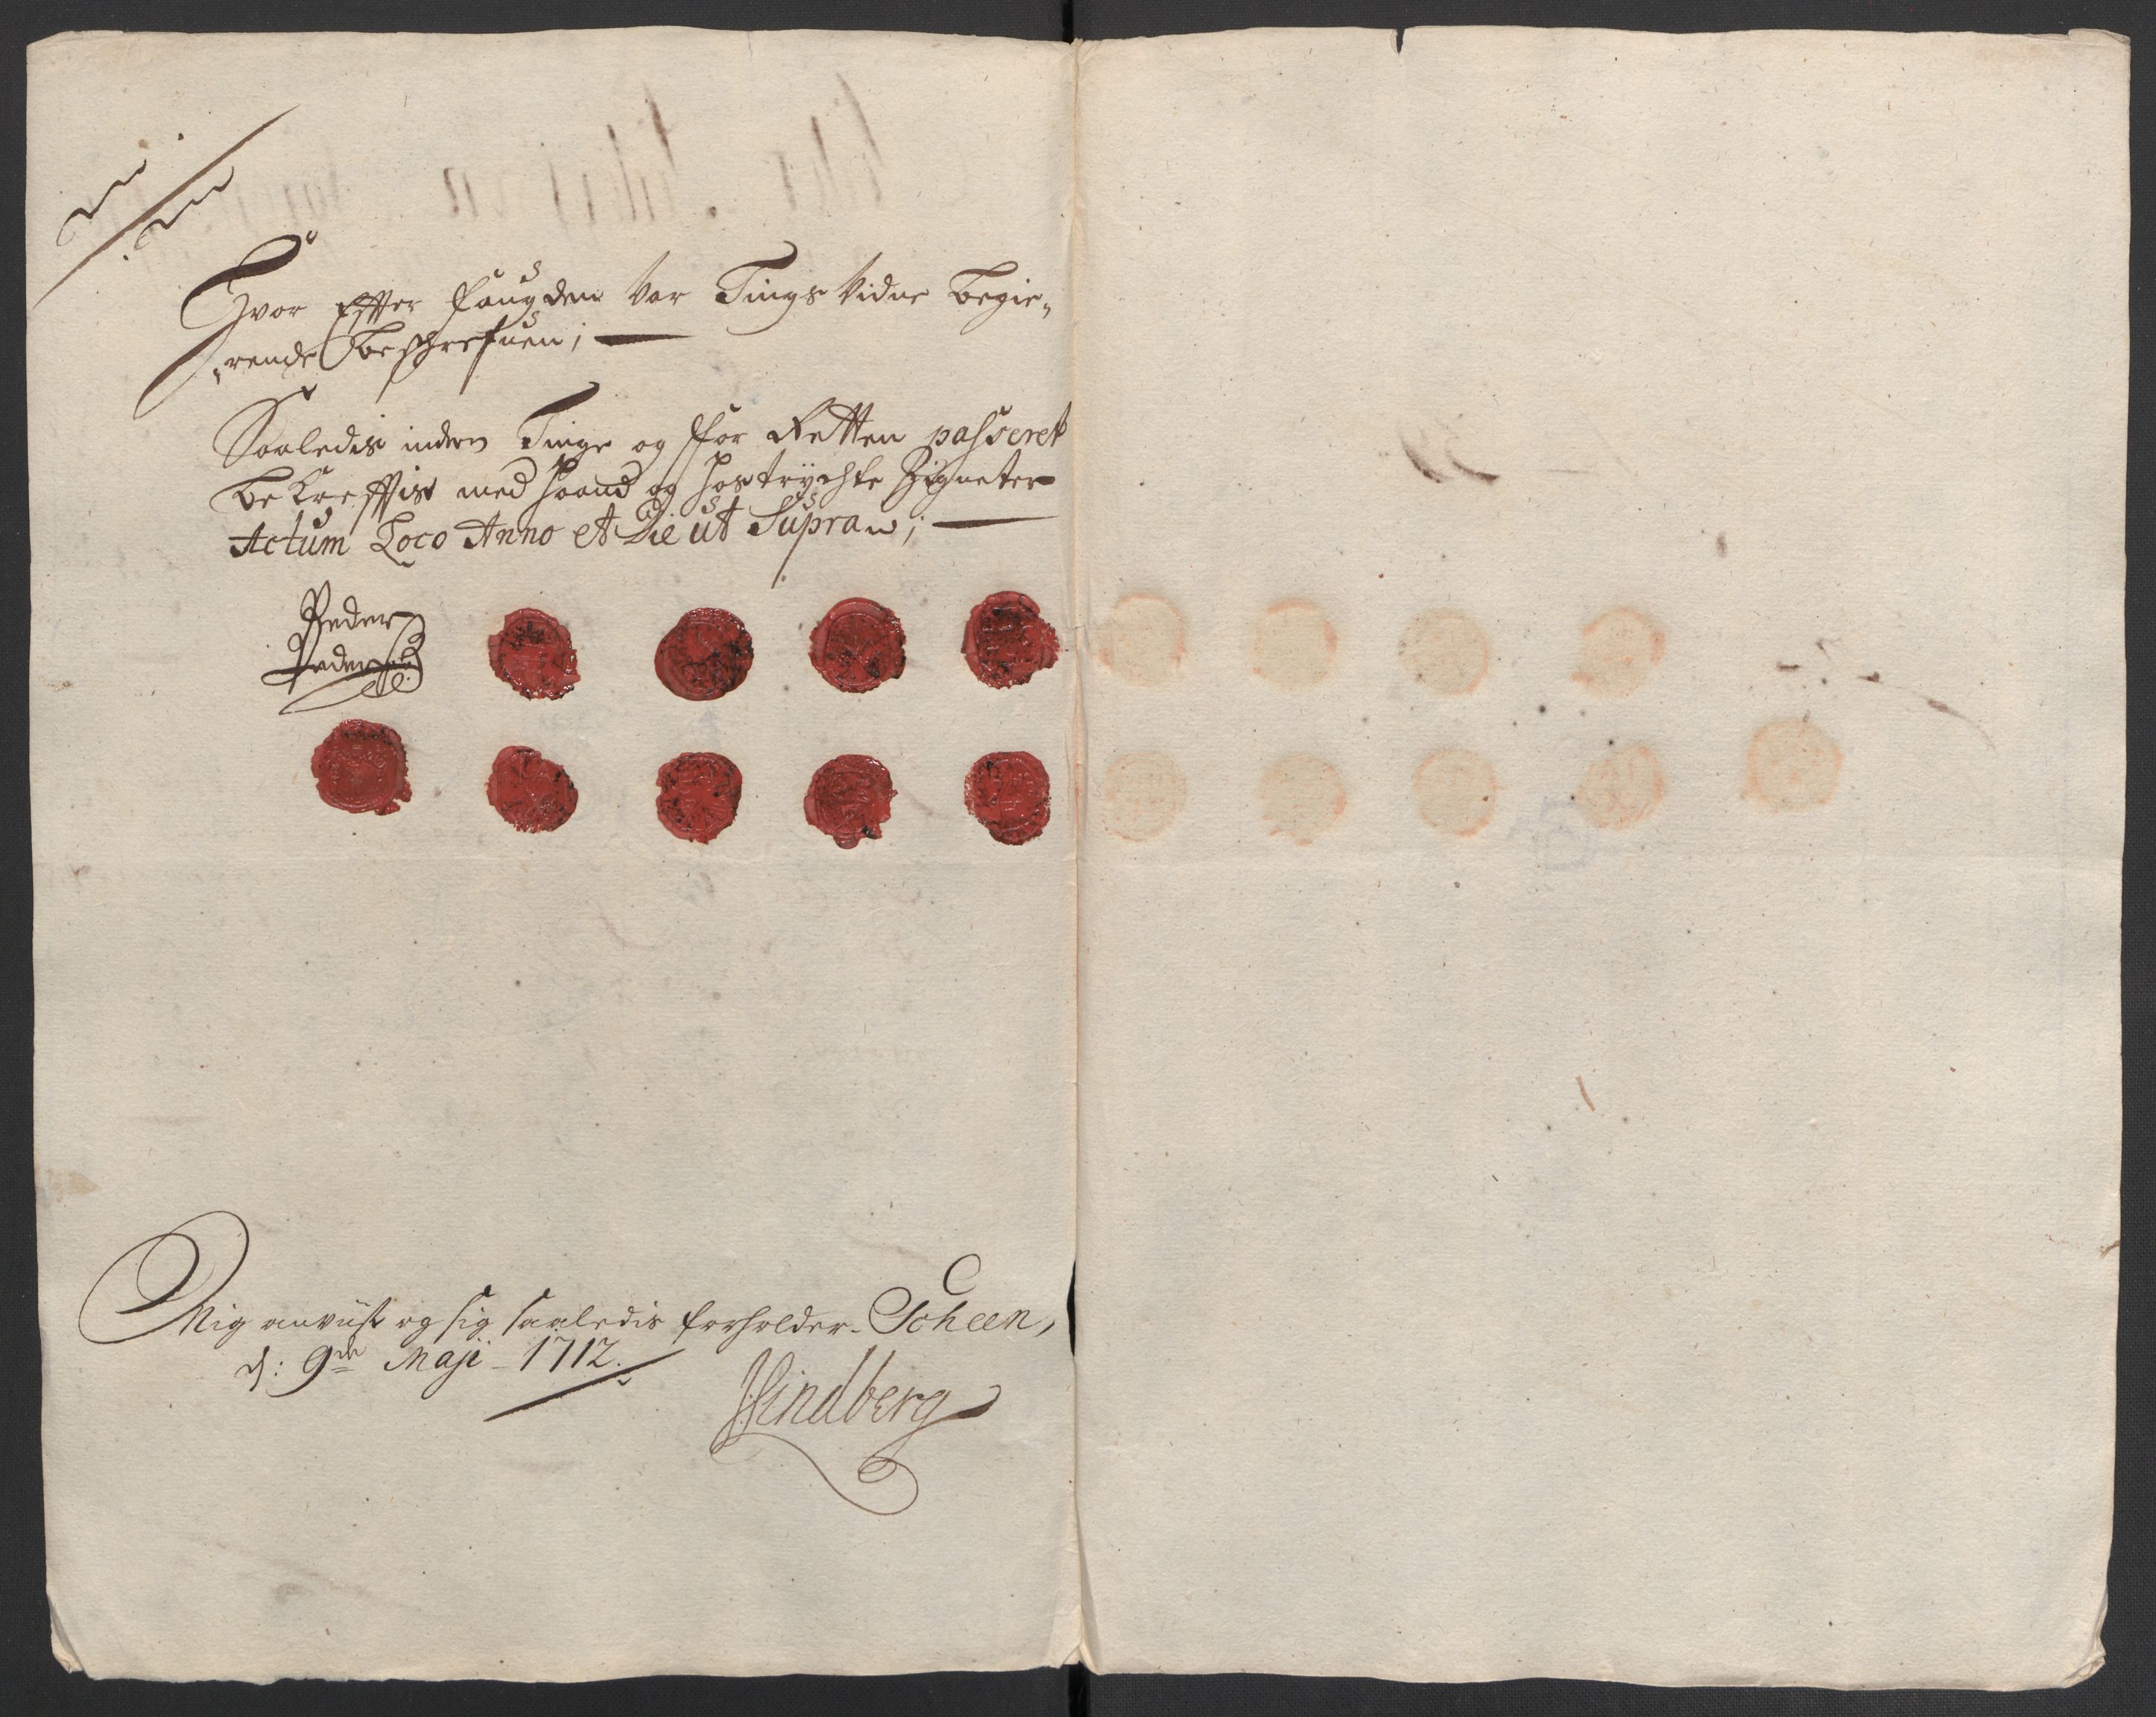 Hvor Effter fougden var Tings Vidne begie„
„rende beschrefuen;
Saaledis inden Tinge og for Retten passeret
bekrefftis med haand og hostrychte Zigneter
Actum Loco Anno et Die ut Supra;
Peder
Peders:
Mig anviist og sig saaledis forholder. Scheen,
d: 9de Maji 1712.
JLindberg